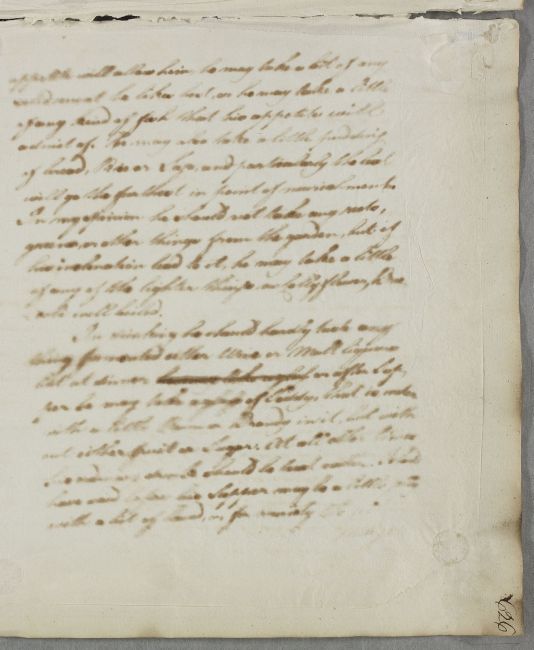 appetite will allow him, he may take a bit of any
meat he likes best, or he may take a little
of any kind of fish that his appetite will
admit of. He may also take a little pudding
of bread, Rice or Sago, and particularly the last
will go the furthest in point of nourishment
In my opinion he should not take any roots,
greens, or other things from the garden, but if
his inclination lead to it, he may take a little
of any of the lighter things, as
well boiled.
In drinking he should hardly taste any
thing fermented either Wine or Malt liquors
but at dinner or after Sup,
per he may take a of Toddy, that is water
with a little Rum or Brandy in it, but with
out either fruit or Sugar. At all other times
his should be water. I
have said before his Supper may be a little
with a bit of bread, or for variety
626